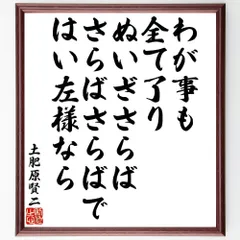 わが事も
全て了り
ぬいざさらば
さらばさらばで
はい左様なら
土肥原賢二